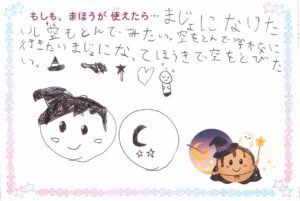 もしも、まほうが 使えたら… まじょになりた
いし空もとんでみたい。空をとんで学校に
行きたいまじょになってほうきで空をとびた
い。